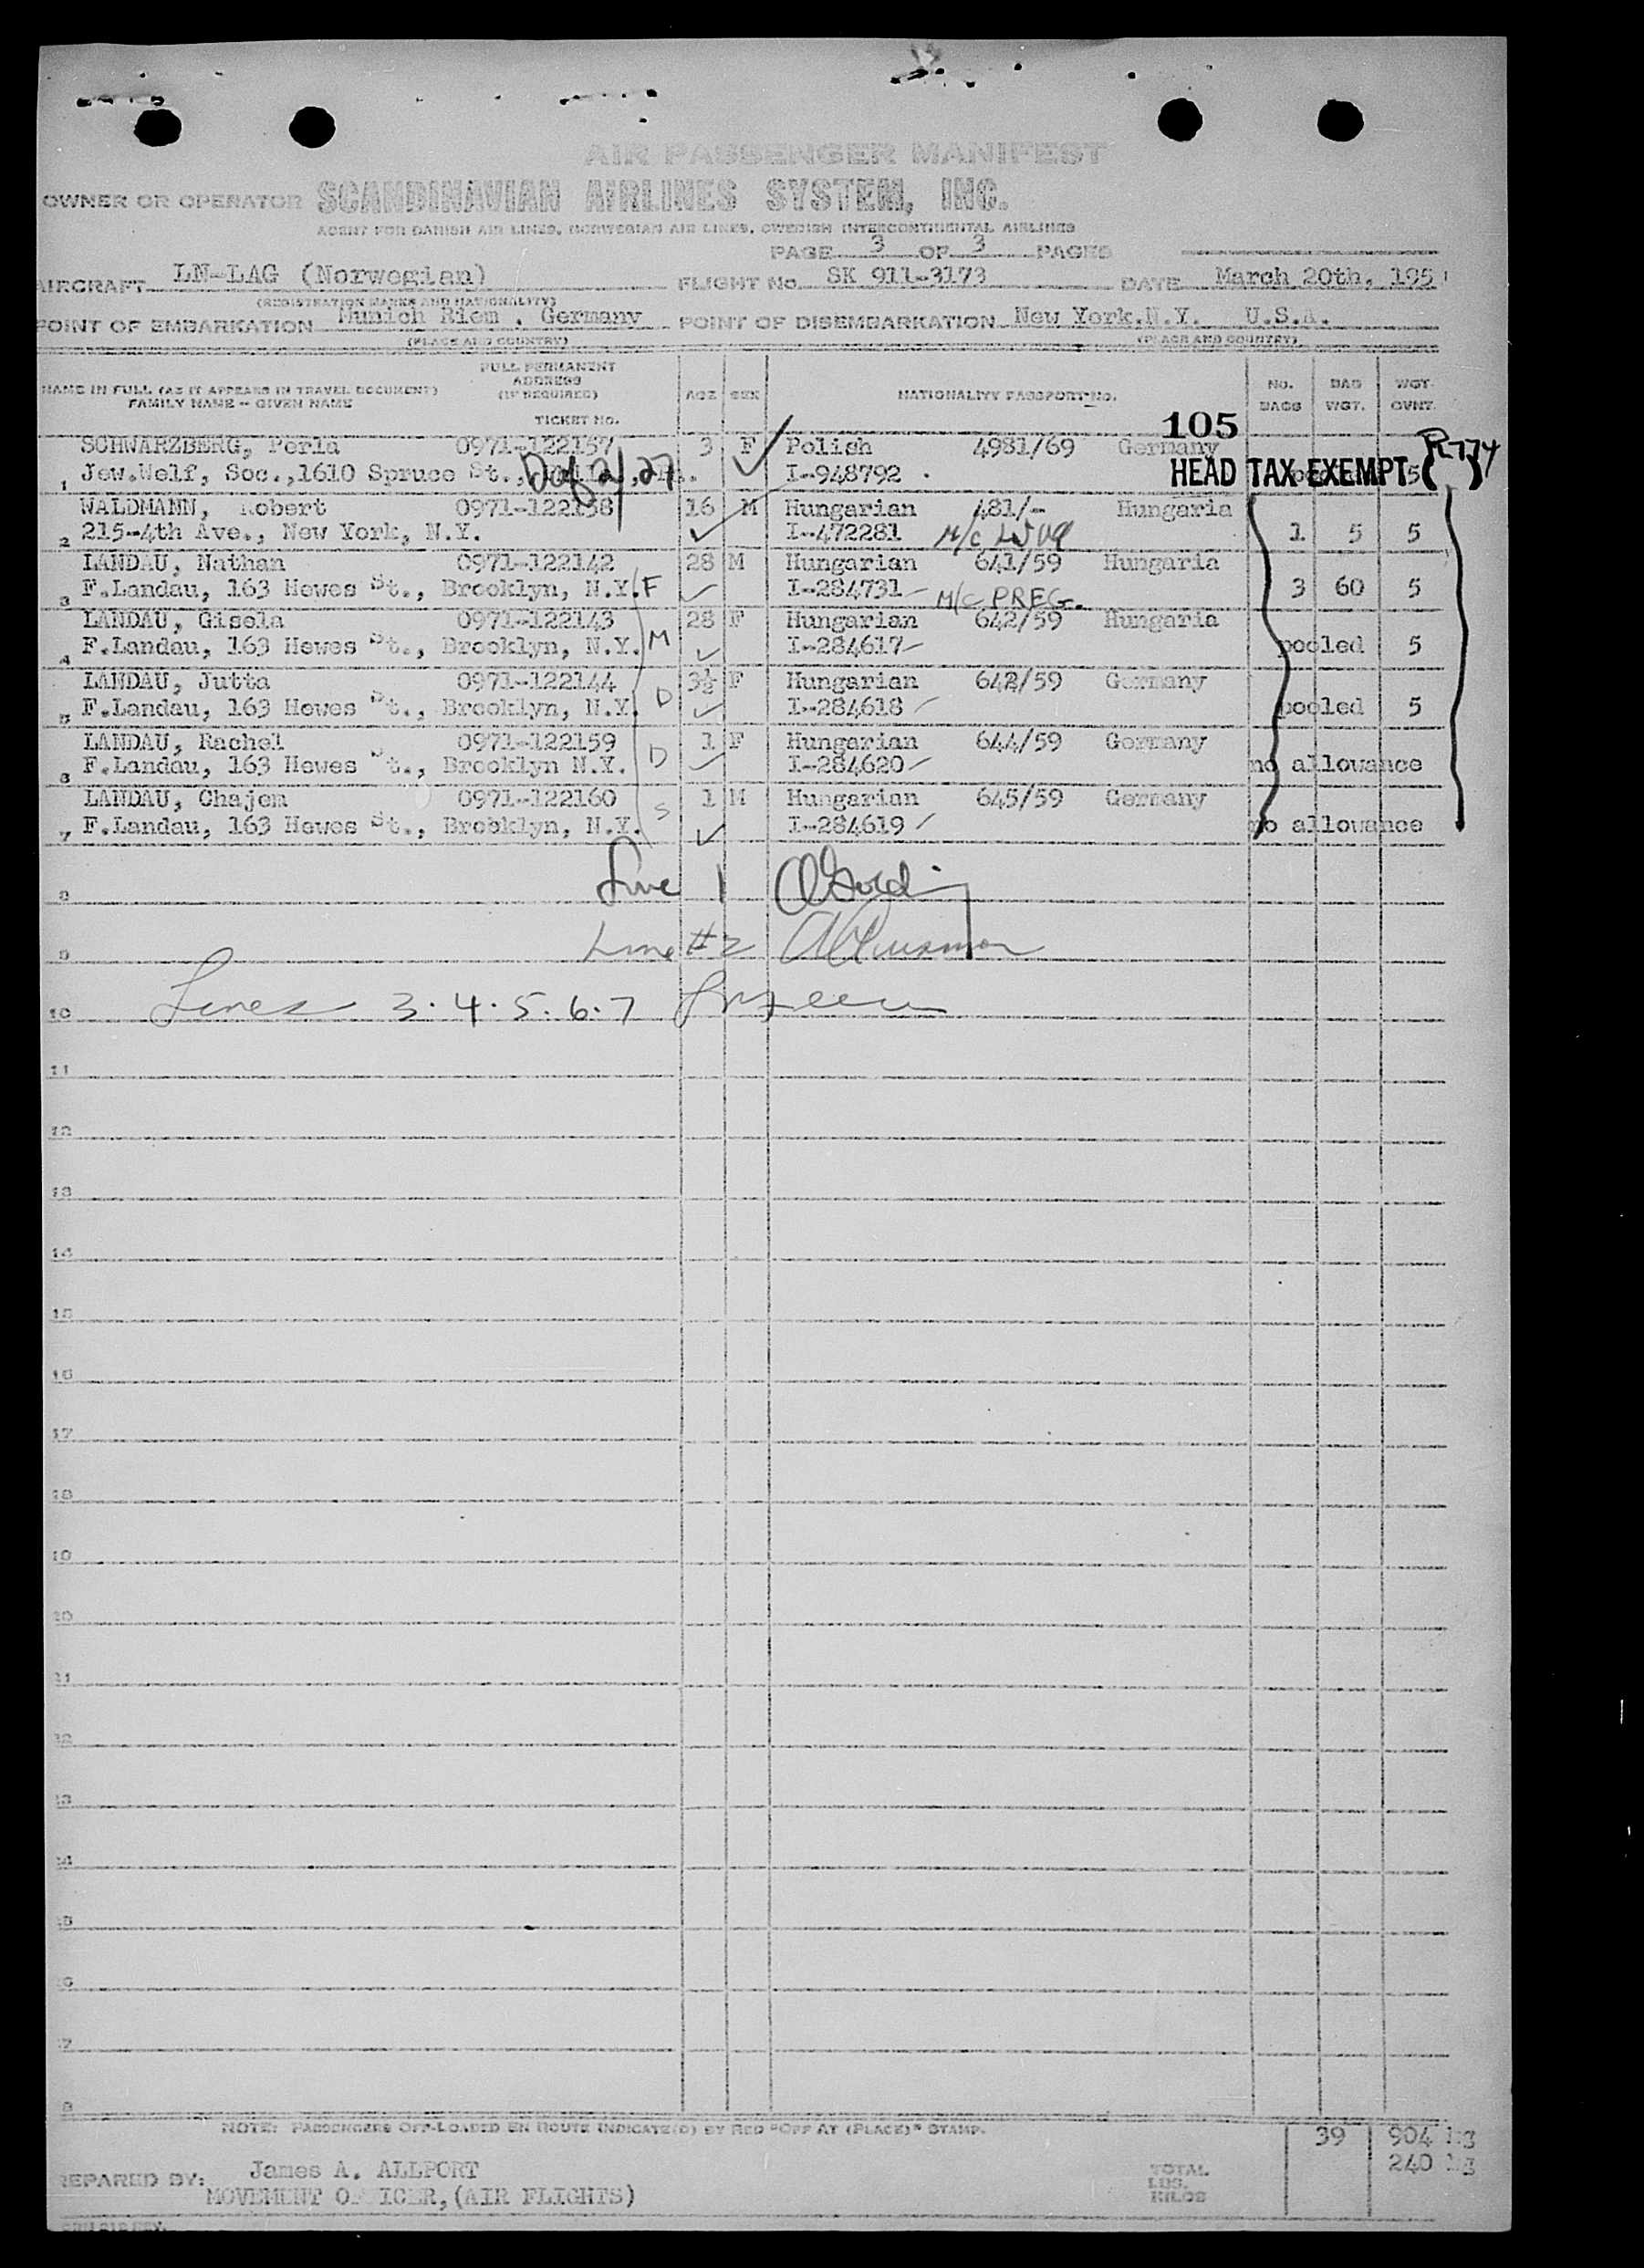 AIR PASSENGER MANIFEST
OWNER OR OPERATOR SCANDINAVIAN AIRLINES SYSTEM, INC.
AGENT FOR DANISH AIR LINES, NORWEGIAN AIR LINES, SWEDISH INTERCONTINENTAL AIRLINES
PAGE 3 OF 3 PAGES
AIRCRAFT LN-LAG (Norwegian) FLIGHT No. SK 911-3173 DATE March 20th, 195
(REGISTRATION MARKS AND NATIONALITY)
POINT OF EMBARKATION Munich Riem , Germany POINT OF DISEMBARKATION New York.N.Y. U.S.A.
(PLACE AND COUNTRY) (PLACE AND COUNTRY)
NAME IN FULL (AS IT APPEARS IN TRAVEL DOCUMENT) FAMILY NAME -- GIVEN NAME FULL PERMANENT ADDRESS (IF REQUIRED) TICKET NO. AGE SEX NATIONALITY PASSPORT No. No. BAGS BAG WGT. WGT. OVNT.
105
SCHWARZBERG, Perla 0971-122157 3 F Polish 4981/69 Germany R774
1 Jew.Welf, Soc.,1610 Spruce St., I-948792 HEAD TAX EXEMPT 5
WALDMANN, Robert 0971-122158 16 M Hungarian 481/- Hungaria
2 215-4th Ave., New York, N.Y. I-472281 M/C 1 5 5
LANDAU, Nathan 0971-122142 28 M Hungarian 641/59 Hungaria
3 F.Landau, 163 Hewes St., Brooklyn, N.Y. F I-284731 M/C PREG. 3 60 5
LANDAU, Gisela 0971-122143 28 F Hungarian 642/59 Hungaria
4 F.Landau, 163 Hewes St., Brooklyn, N.Y. M I-284617 pooled 5
LANDAU, Jutta 0971-122144 3½ F Hungarian 642/59 Germany
5 F.Landau, 163 Hewes St., Brooklyn, N.Y. D I-284618 pooled 5
LANDAU, Rachel 0971-122159 1 F Hungarian 644/59 Germany
6 F.Landau, 163 Hewes St., Brooklyn N.Y. D I-284620 no allowance
LANDAU, Chajem 0971-122160 1 M Hungarian 645/59 Germany
7 F.Landau, 163 Hewes St., Brooklyn, N.Y. S I-284619 no allowance
8 Line 1
9 Line #2
10 Lines 3.4.5.6.7
11
12
13
14
15
16
17
18
19
20
21
22
23
24
25
26
27
28
NOTE: PASSENGERS OFF-LOADED EN ROUTE INDICATE(D) BY RED "OFF AT (PLACE)" STAMP.
39 904 kg
240 kg
PREPARED BY: James A. ALLPORT TOTAL LBS. KILOS
MOVEMENT OFFICER,(AIR FLIGHTS)